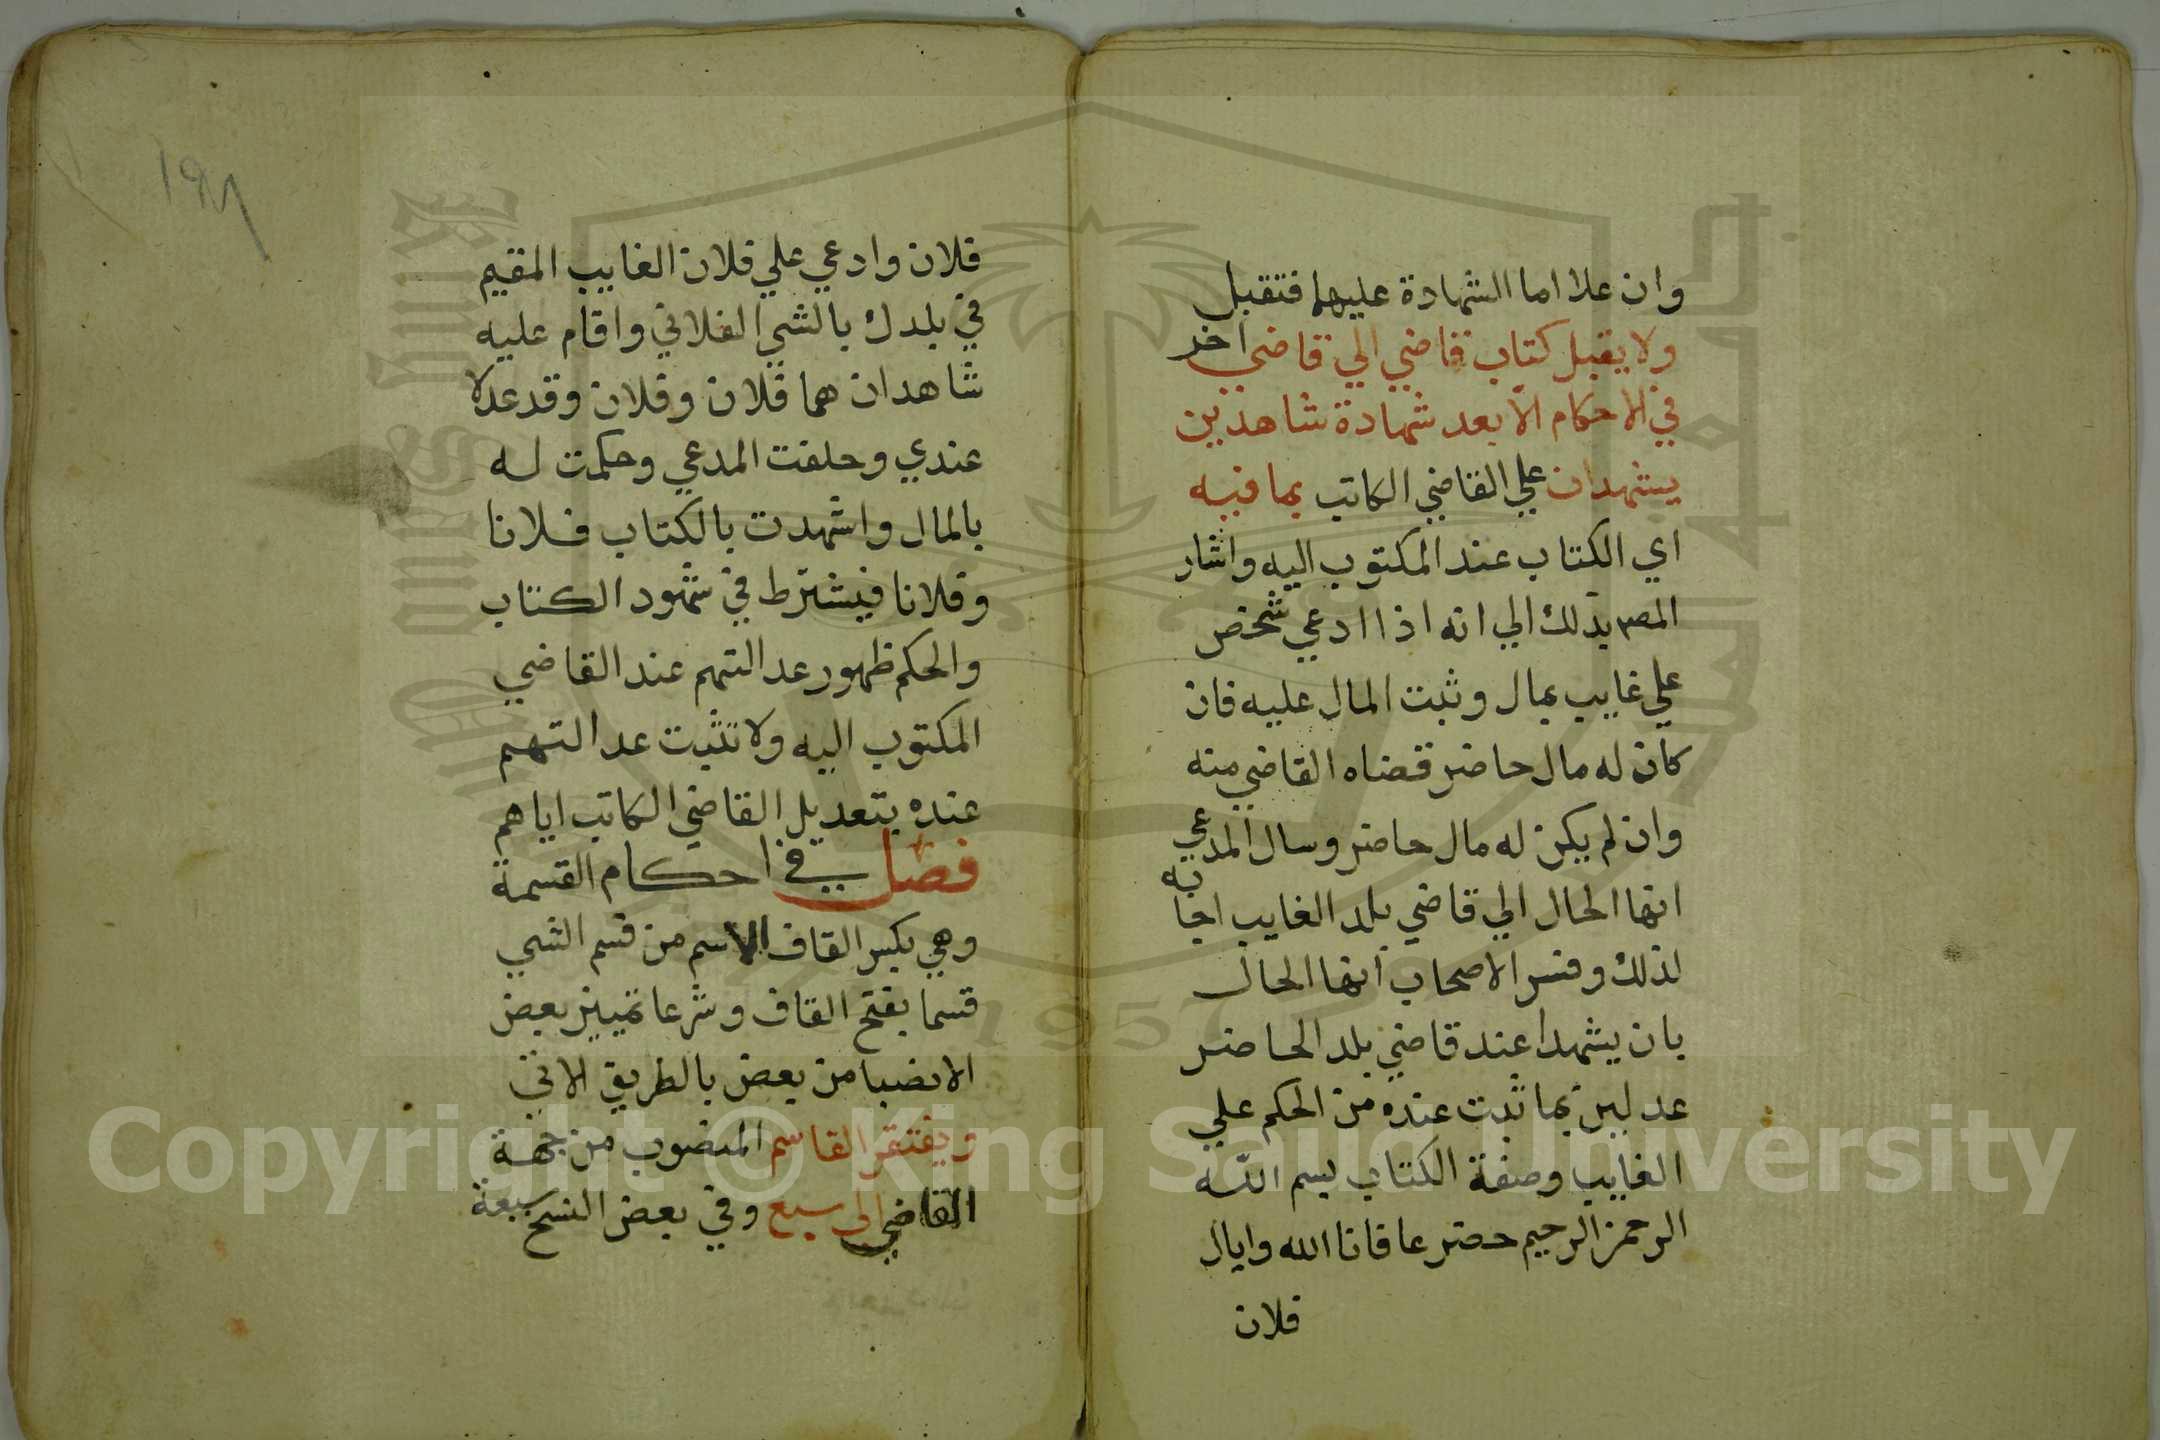 وان علا اما الشهادة عليهما فتقبل
ولا يقبل كتاب قاضي الي قاضي اخر
في الاحكام الا بعد شهادة شاهدين
يشهدان علي القاضي الكاتب بما فيه
اي الكتاب عند المكتوب اليه واشار
المصـ بذلك الي انه اذا ادعي شخص
علي غايب بمال وثبت المال عليه فان
كان له مال حاضر قضاه القاضي منه
وان لم يكن له مال حاضر وسال المدعي
انها الحال الي قاضي بلد الغايب اجابه
لذلك وفسر الاصحاب انها الحال
بان يشهدا عند قاضي بلد الحاضر
عدلين بما ثبت عنده من الحكم علي
الغايب وصفة الكتاب بسم الله
الرحمن الرحيم حضر عافانا الله واياك
فلان
١٩٦
فلان وادعي علي فلان الغايب المقيم
في بلدك بالشي الفلاني واقام عليه
شاهدان هما فلان وفلان وقد عدلا
عندي وحلفت المدعي وحكمت له
بالمال واشهدت بالكتاب فلانا
وفلانا فيشترط في شهود الكتاب
والحكم ظهور عدالتهم عند القاضي
المكتوب اليه ولا تثبت عدالتهم
عنده بتعديل القاضي الكاتب اياهم
فصل في احكام القسمة
وهي بكسر القاف الاسم من قسم الشي
قسما بفتح القاف وشرعا تمييز بعض
الانصبا من بعض بالطريق الاتي
ويفتقر القاسم المنصوب من جهة
القاضي الى سبع وفي بعض النسخ سبعة
Copyright © King Saud University
King Saud University
1957